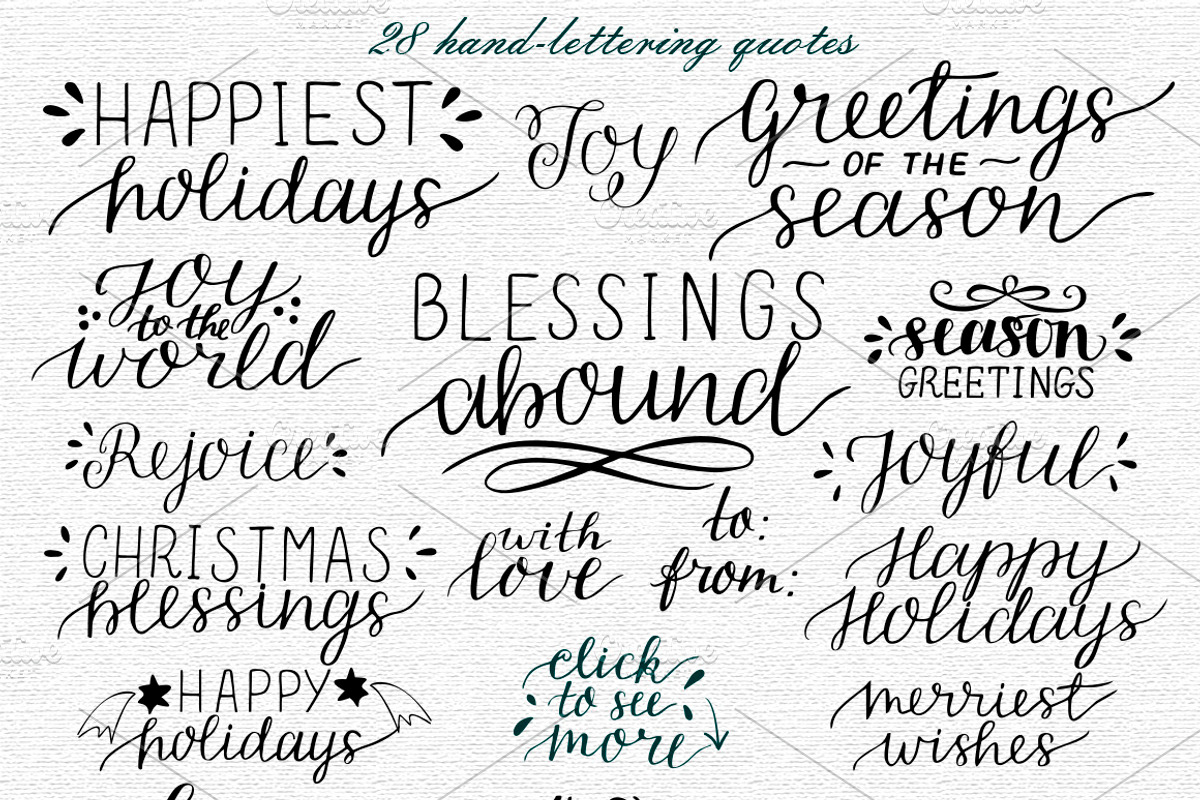 28 hand-lettering quotes
HAPPIEST
holidays
Joy
Greetings
OF THE
season
Joy
to the
world
BLESSINGS
abound
season
GREETINGS
Rejoice
Joyful
CHRISTMAS
blessings
with
love
to:
from:
Happy
Holidays
HAPPY
holidays
click
to see
more
merriest
wishes